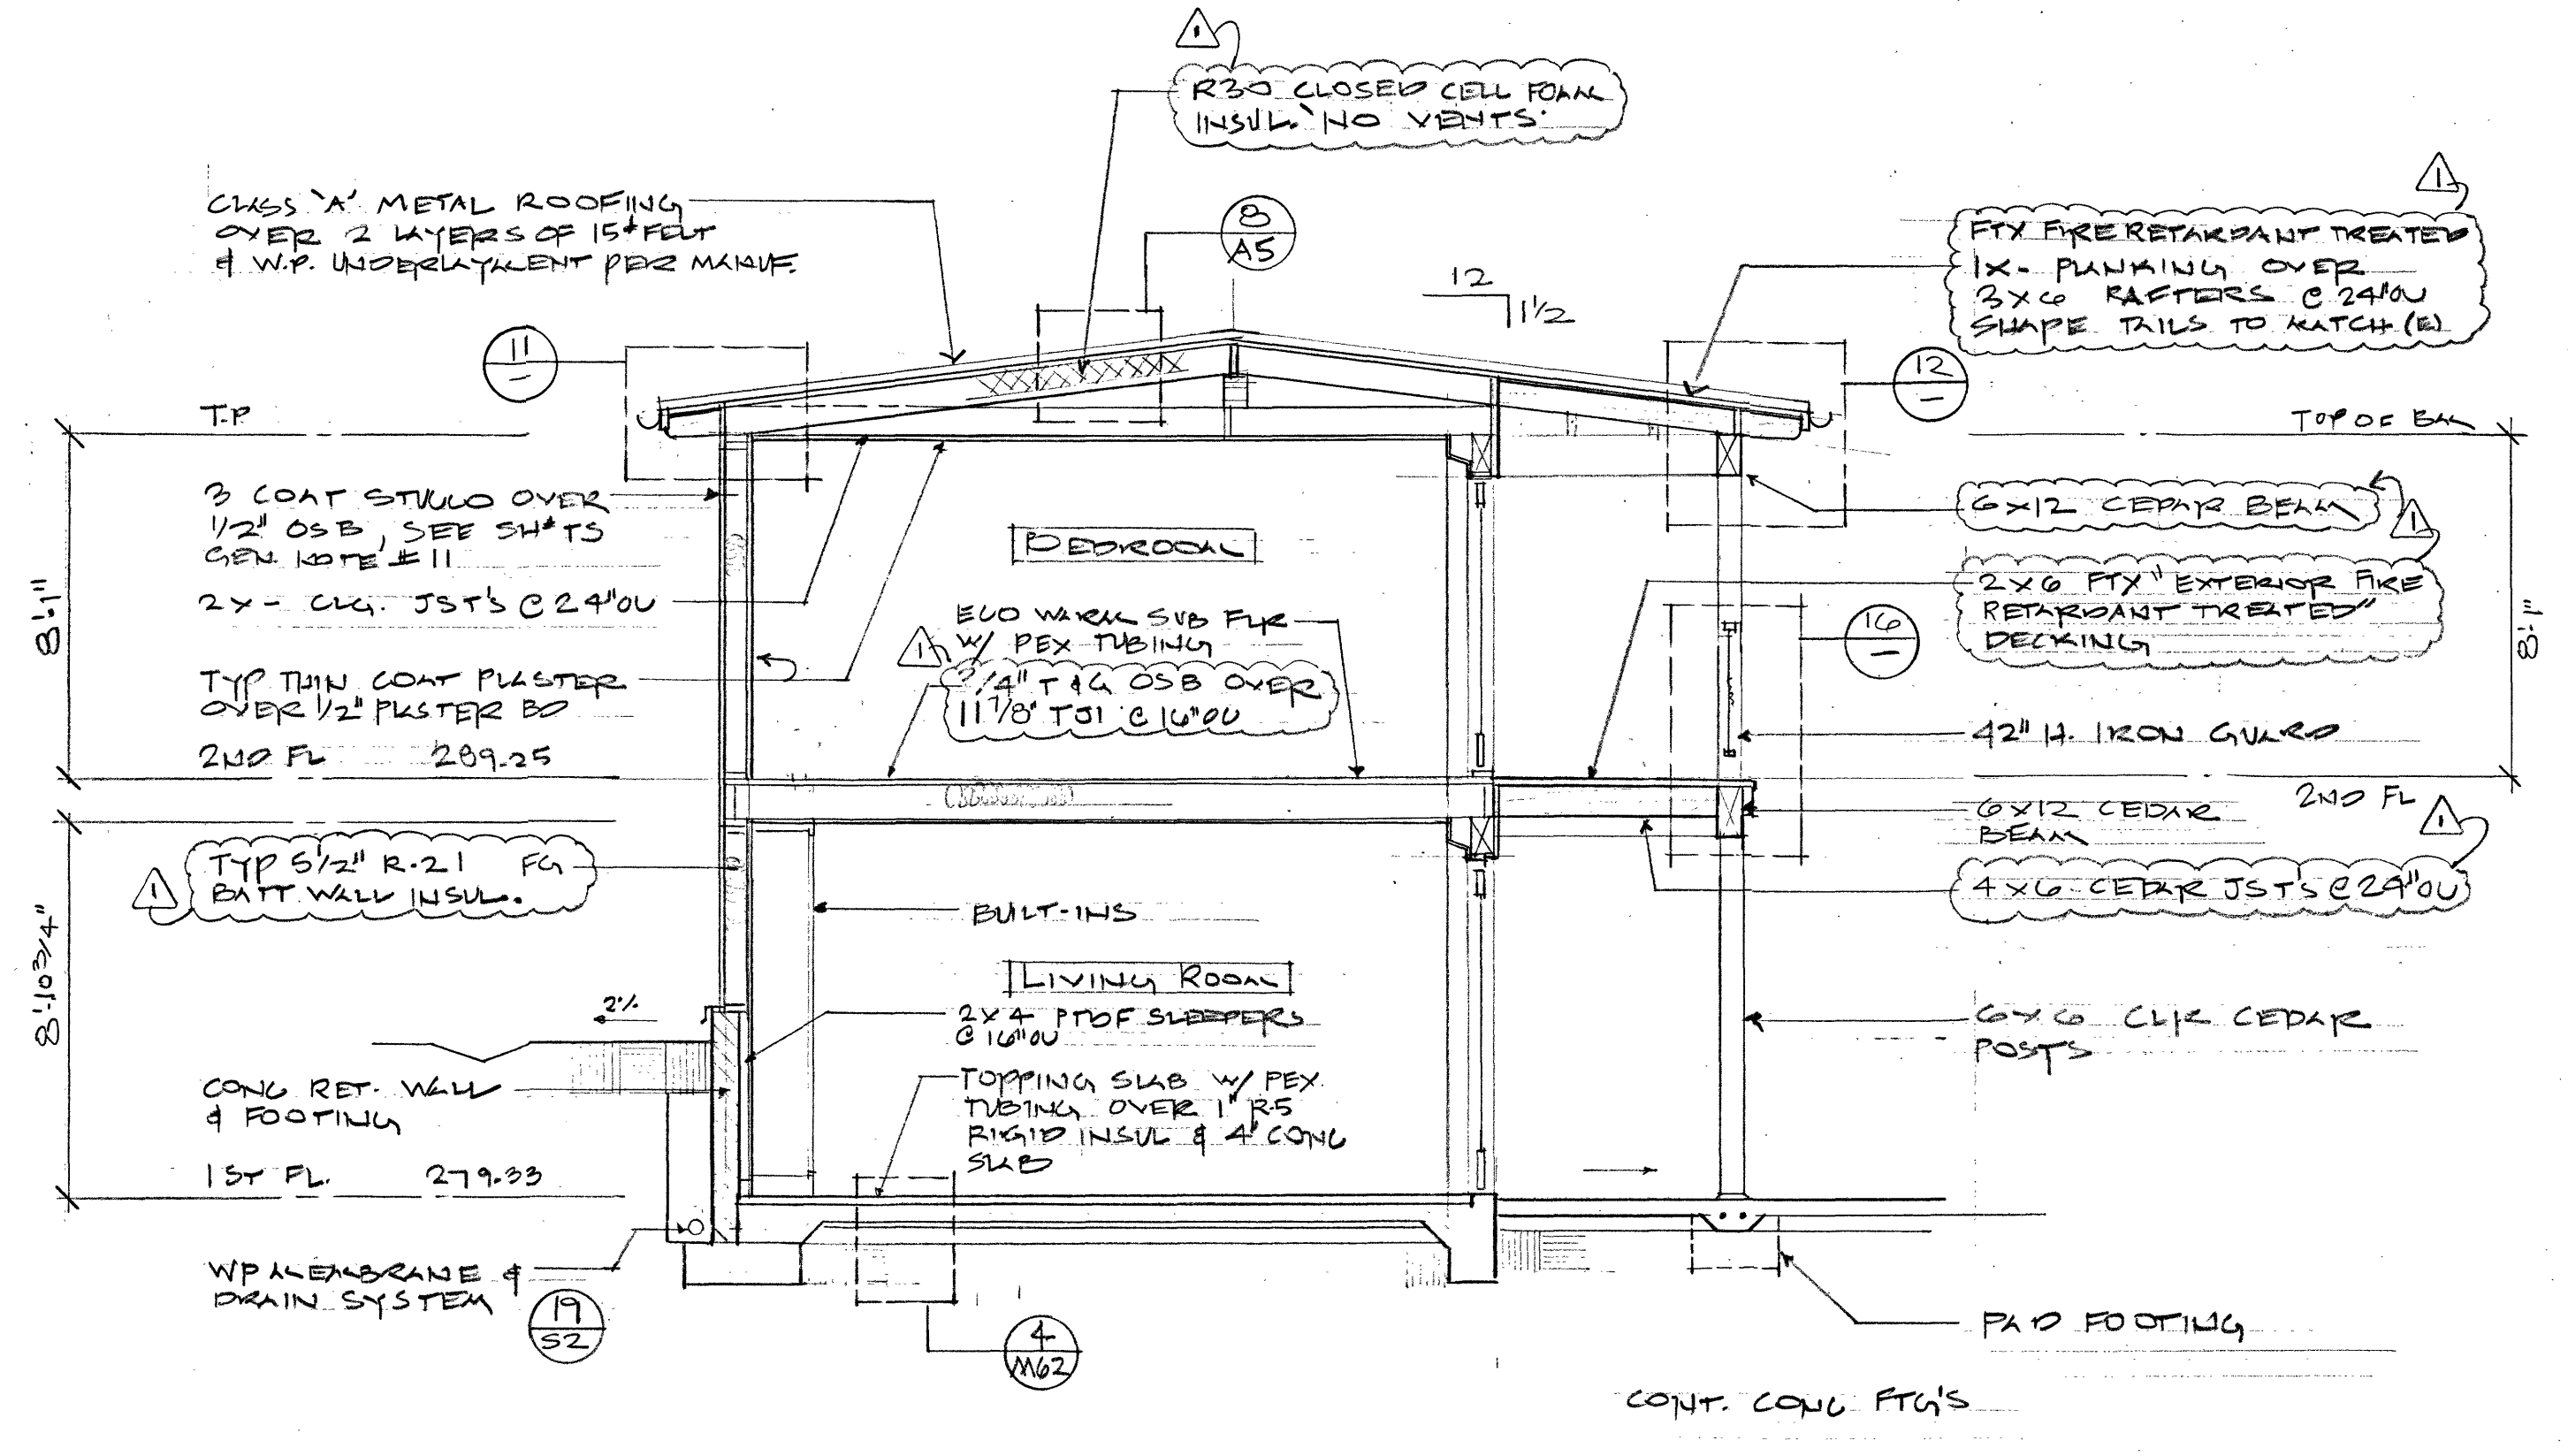 1
R30 CLOSED CELL FOAM
INSUL. NO VENTS.
CLASS 'A' METAL ROOFING
OVER 2 LAYERS OF 15# FELT
& W.P. UNDERLAYMENT PER MANUF.
8
A5
12
1 1/2
1
FTX FIRE RETARDANT TREATED
1X- PLANKING OVER
3X6 RAFTERS @ 24"OC
SHAPE TAILS TO MATCH (E)
11
-
12
-
T.P
TOP OF BM
3 COAT STUCCO OVER
1/2" OSB, SEE SH#TS
GEN. NOTE # 11
2X- CLG. JST'S @ 24"OC
8'-1"
TYP THIN COAT PLASTER
OVER 1/2" PLSTER BD
2ND FL 289.25
BEDROOM
ECO WARM SUB FLR
W/ PEX TUBING
1
3/4" T&G OSB OVER
11 7/8" TJI @ 16"OC
6X12 CEDAR BEAM
1
2X6 FTX "EXTERIOR FIRE
RETARDANT TREATED"
DECKING
16
-
8'-1"
42" H. IRON GUARD
2ND FL
6X12 CEDAR
BEAM
1
4X6 CEDAR JST'S @ 24"OC
TYP 5 1/2" R-21 FG
BATT WALL INSUL.
1
8'-10 3/4"
BUILT-INS
LIVING ROOM
2X4 PTDF SLEEPERS
@ 16"OC
TOPPING SLAB W/ PEX
TUBING OVER 1" R-5
RIGID INSUL & 4" CONC
SLAB
2%
CONC RET. WALL
& FOOTING
1ST FL. 279.33
6X6 CLR CEDAR
POSTS
WP MEMBRANE &
DRAIN SYSTEM
19
S2
4
M62
PAD FOOTING
CONT. CONC FTG'S